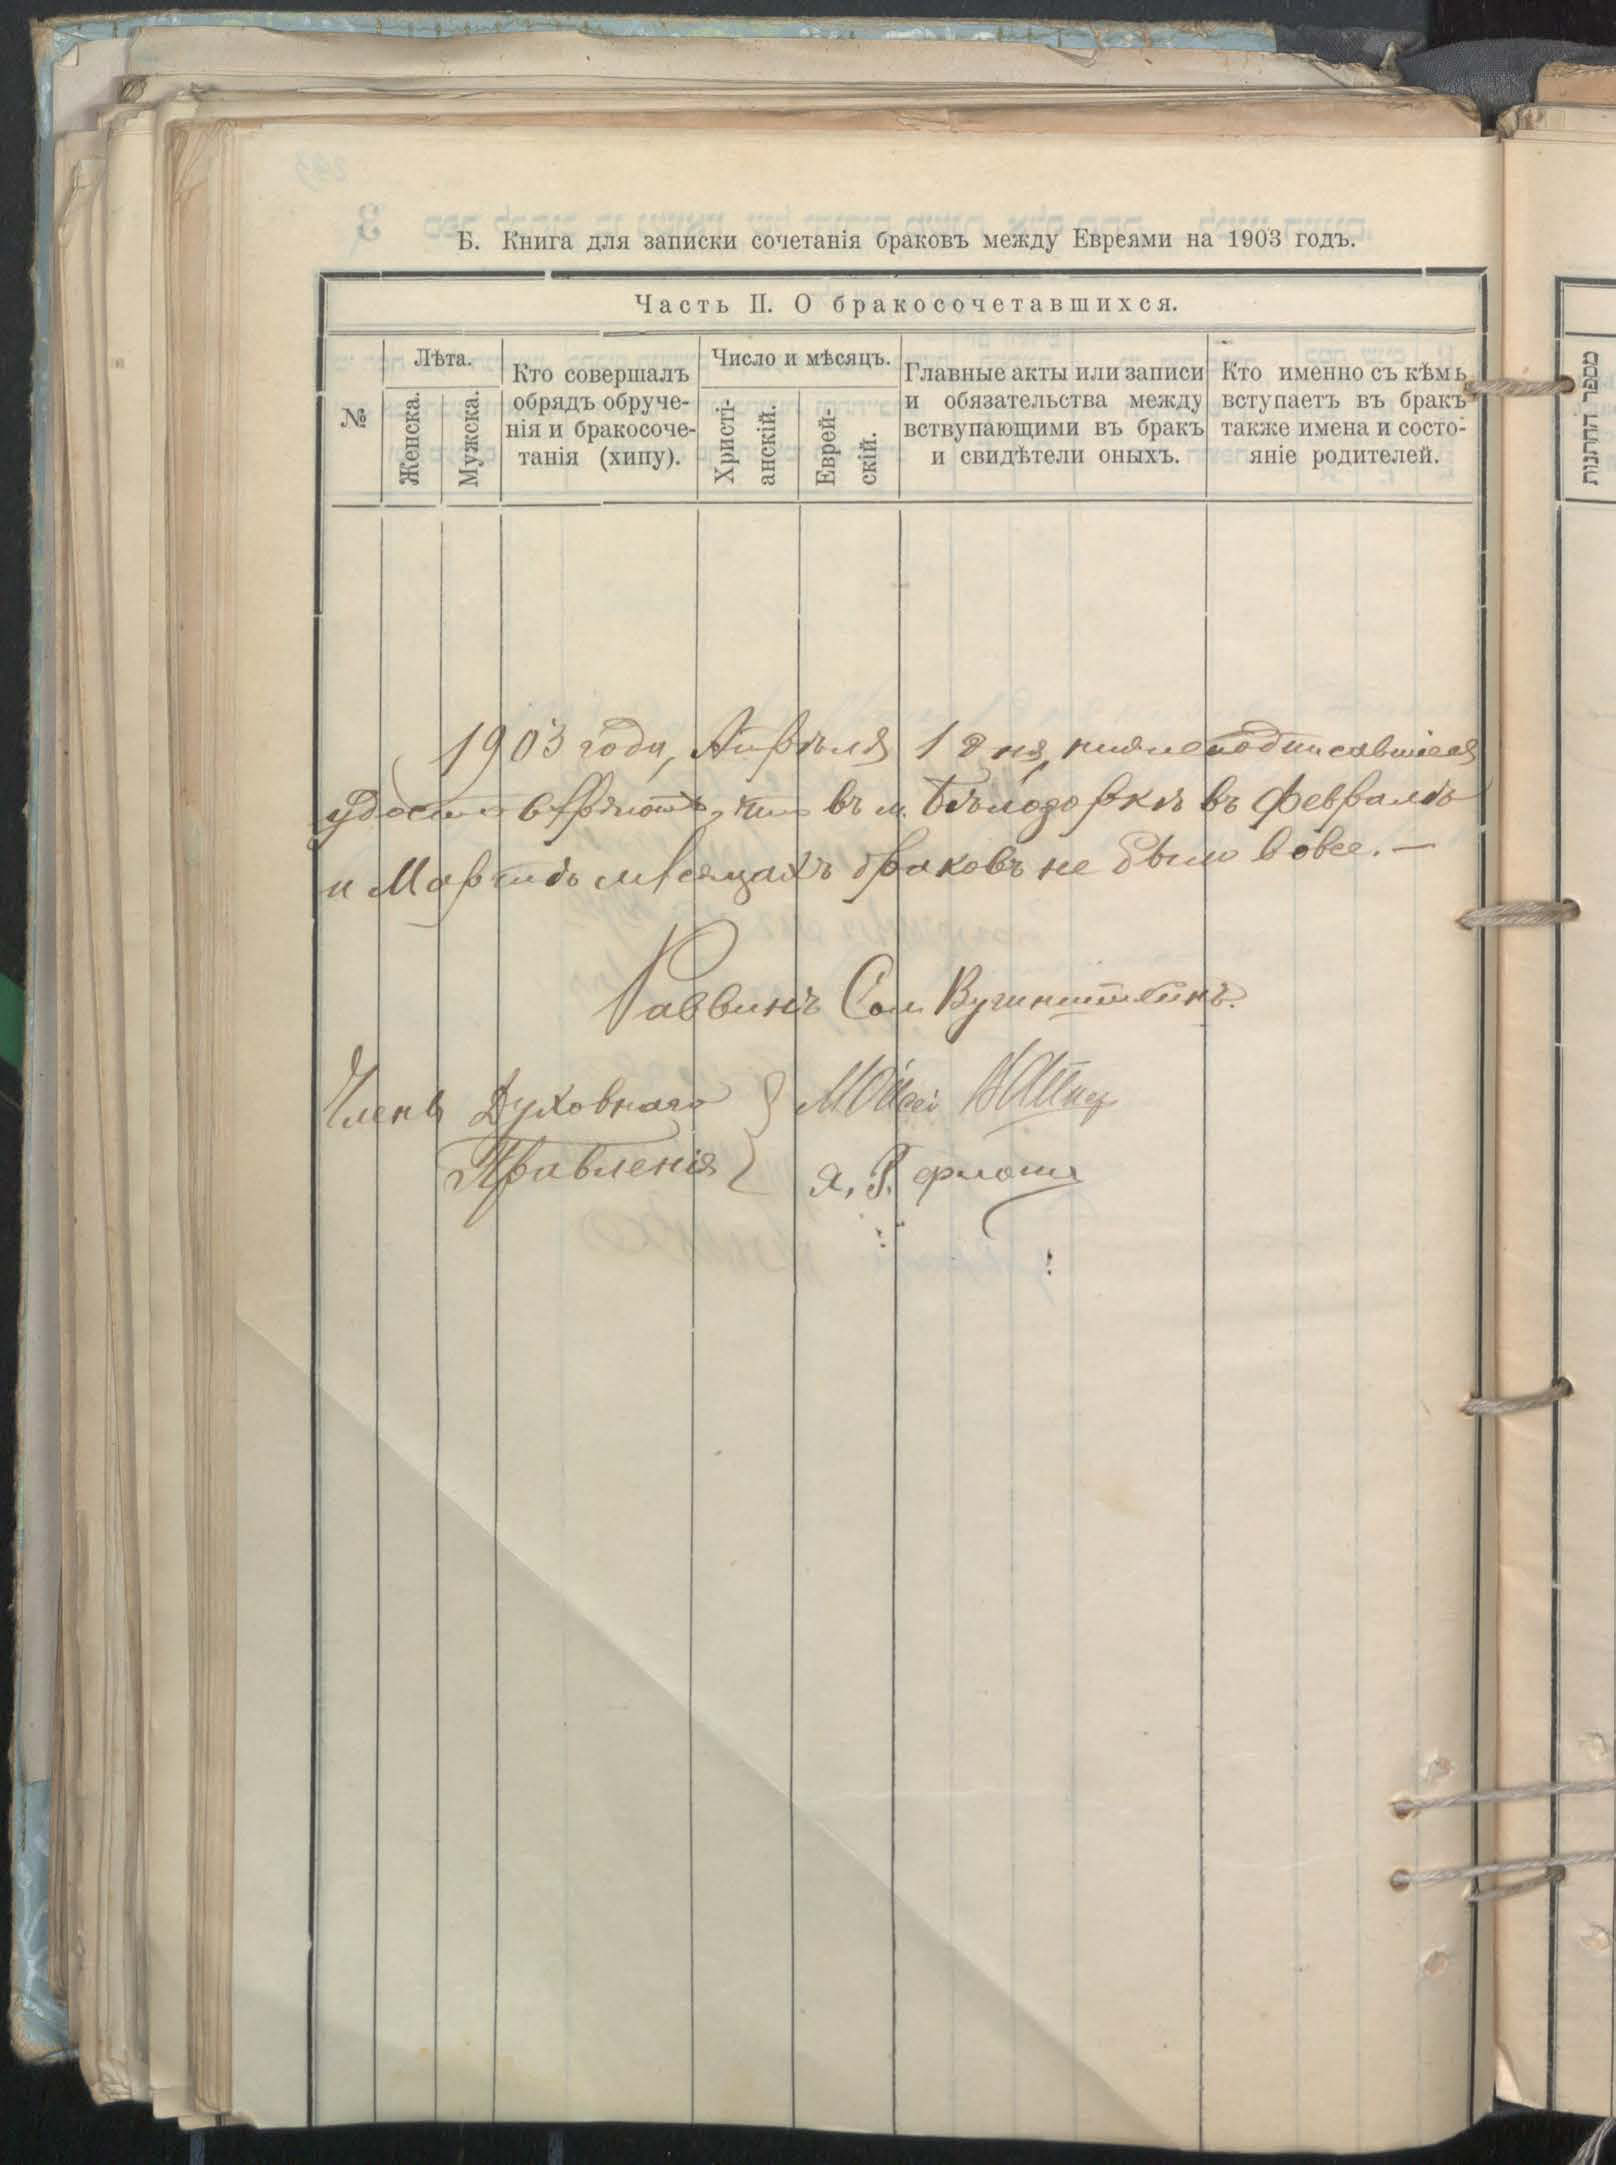 Б. Книга для записки сочетанія браковъ между Евреями на 1903 годъ.
Часть II. О бракосочетавшихся.
№
Лѣта.
Женска.
Мужска.
Кто совершалъ
обрядъ обруче-
нія и бракосоче-
танія (хипу).
Число и мѣсяцъ.
Христі-
анскій.
Еврей-
скій.
Главные акты или записи
и обязательства между
вствупающими въ бракъ
и свидѣтели оныхъ.
Кто именно съ кѣмъ
вступаетъ въ бракъ
также имена и состо-
яніе родителей.
מספר החתנות
1903 года, Апрѣля 1 дня, нижеподписавшіеся
удостовѣряютъ, что въ м. Бѣлозоркѣ въ Февралѣ
и Мартѣ мѣсяцахъ браковъ не было вовсе. —
Раввинъ Сол.
Члены Духовнаго
Правленія